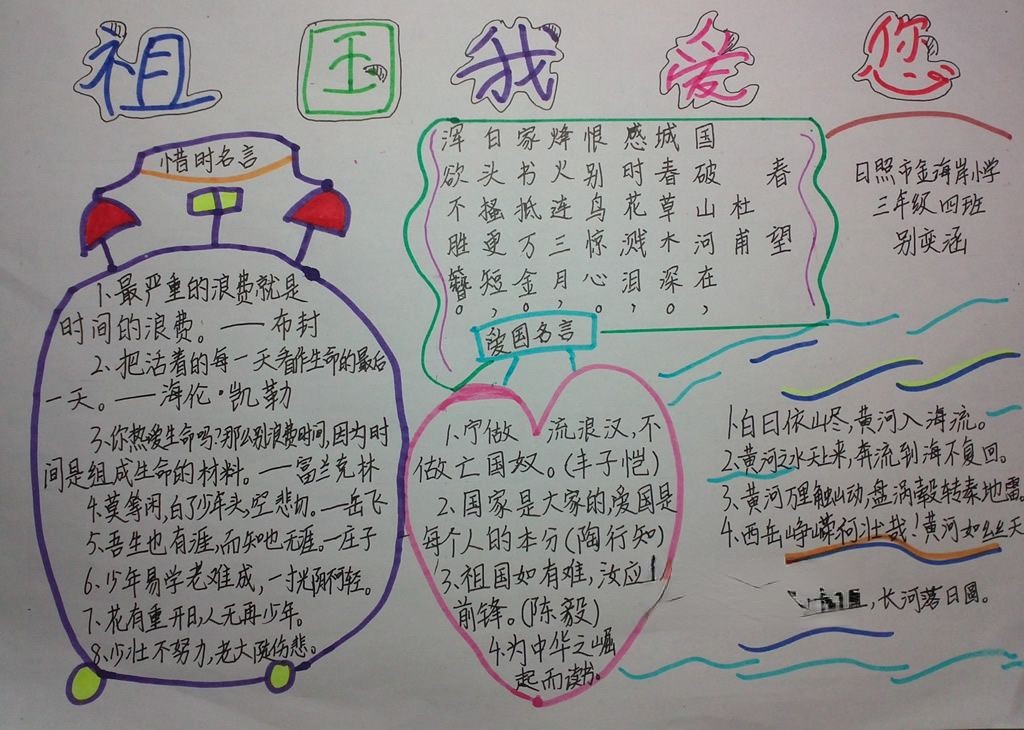 祖国我爱您
惜时名言
1、最严重的浪费就是
时间的浪费。——布封
2、把活着的每一天看作生命的最后
一天。——海伦·凯勒
3、你热爱生命吗?那么别浪费时间,因为时
间是组成生命的材料。—富兰克林
4、莫等闲,白了少年头,空悲切。—岳飞
5、吾生也有涯,而知也无涯。—庄子
6、少年易学老难成,一寸光阴不可轻。
7、花有重开日,人无再少年。
8、少壮不努力,老大徒伤悲。
春望
杜甫
国破山河在,
城春草木深。
感时花溅泪,
恨别鸟惊心。
烽火连三月,
家书抵万金。
白头搔更短,
浑欲不胜簪。
爱国名言
1、宁做 流浪汉,不
做亡国奴。(丰子恺)
2、国家是大家的,爱国是
每个人的本分(陶行知)
3、祖国如有难,汝应
前锋。(陈毅)
4、为中华之崛
起而读书。
日照市金海岸小学
三年级四班
别奕涵
1、白日依山尽,黄河入海流。
2、黄河之水天上来,奔流到海不复回。
3、黄河万里触山动,盘涡毂转秦地雷
4、西岳峥嵘何壮哉!黄河如丝天
,长河落日圆。